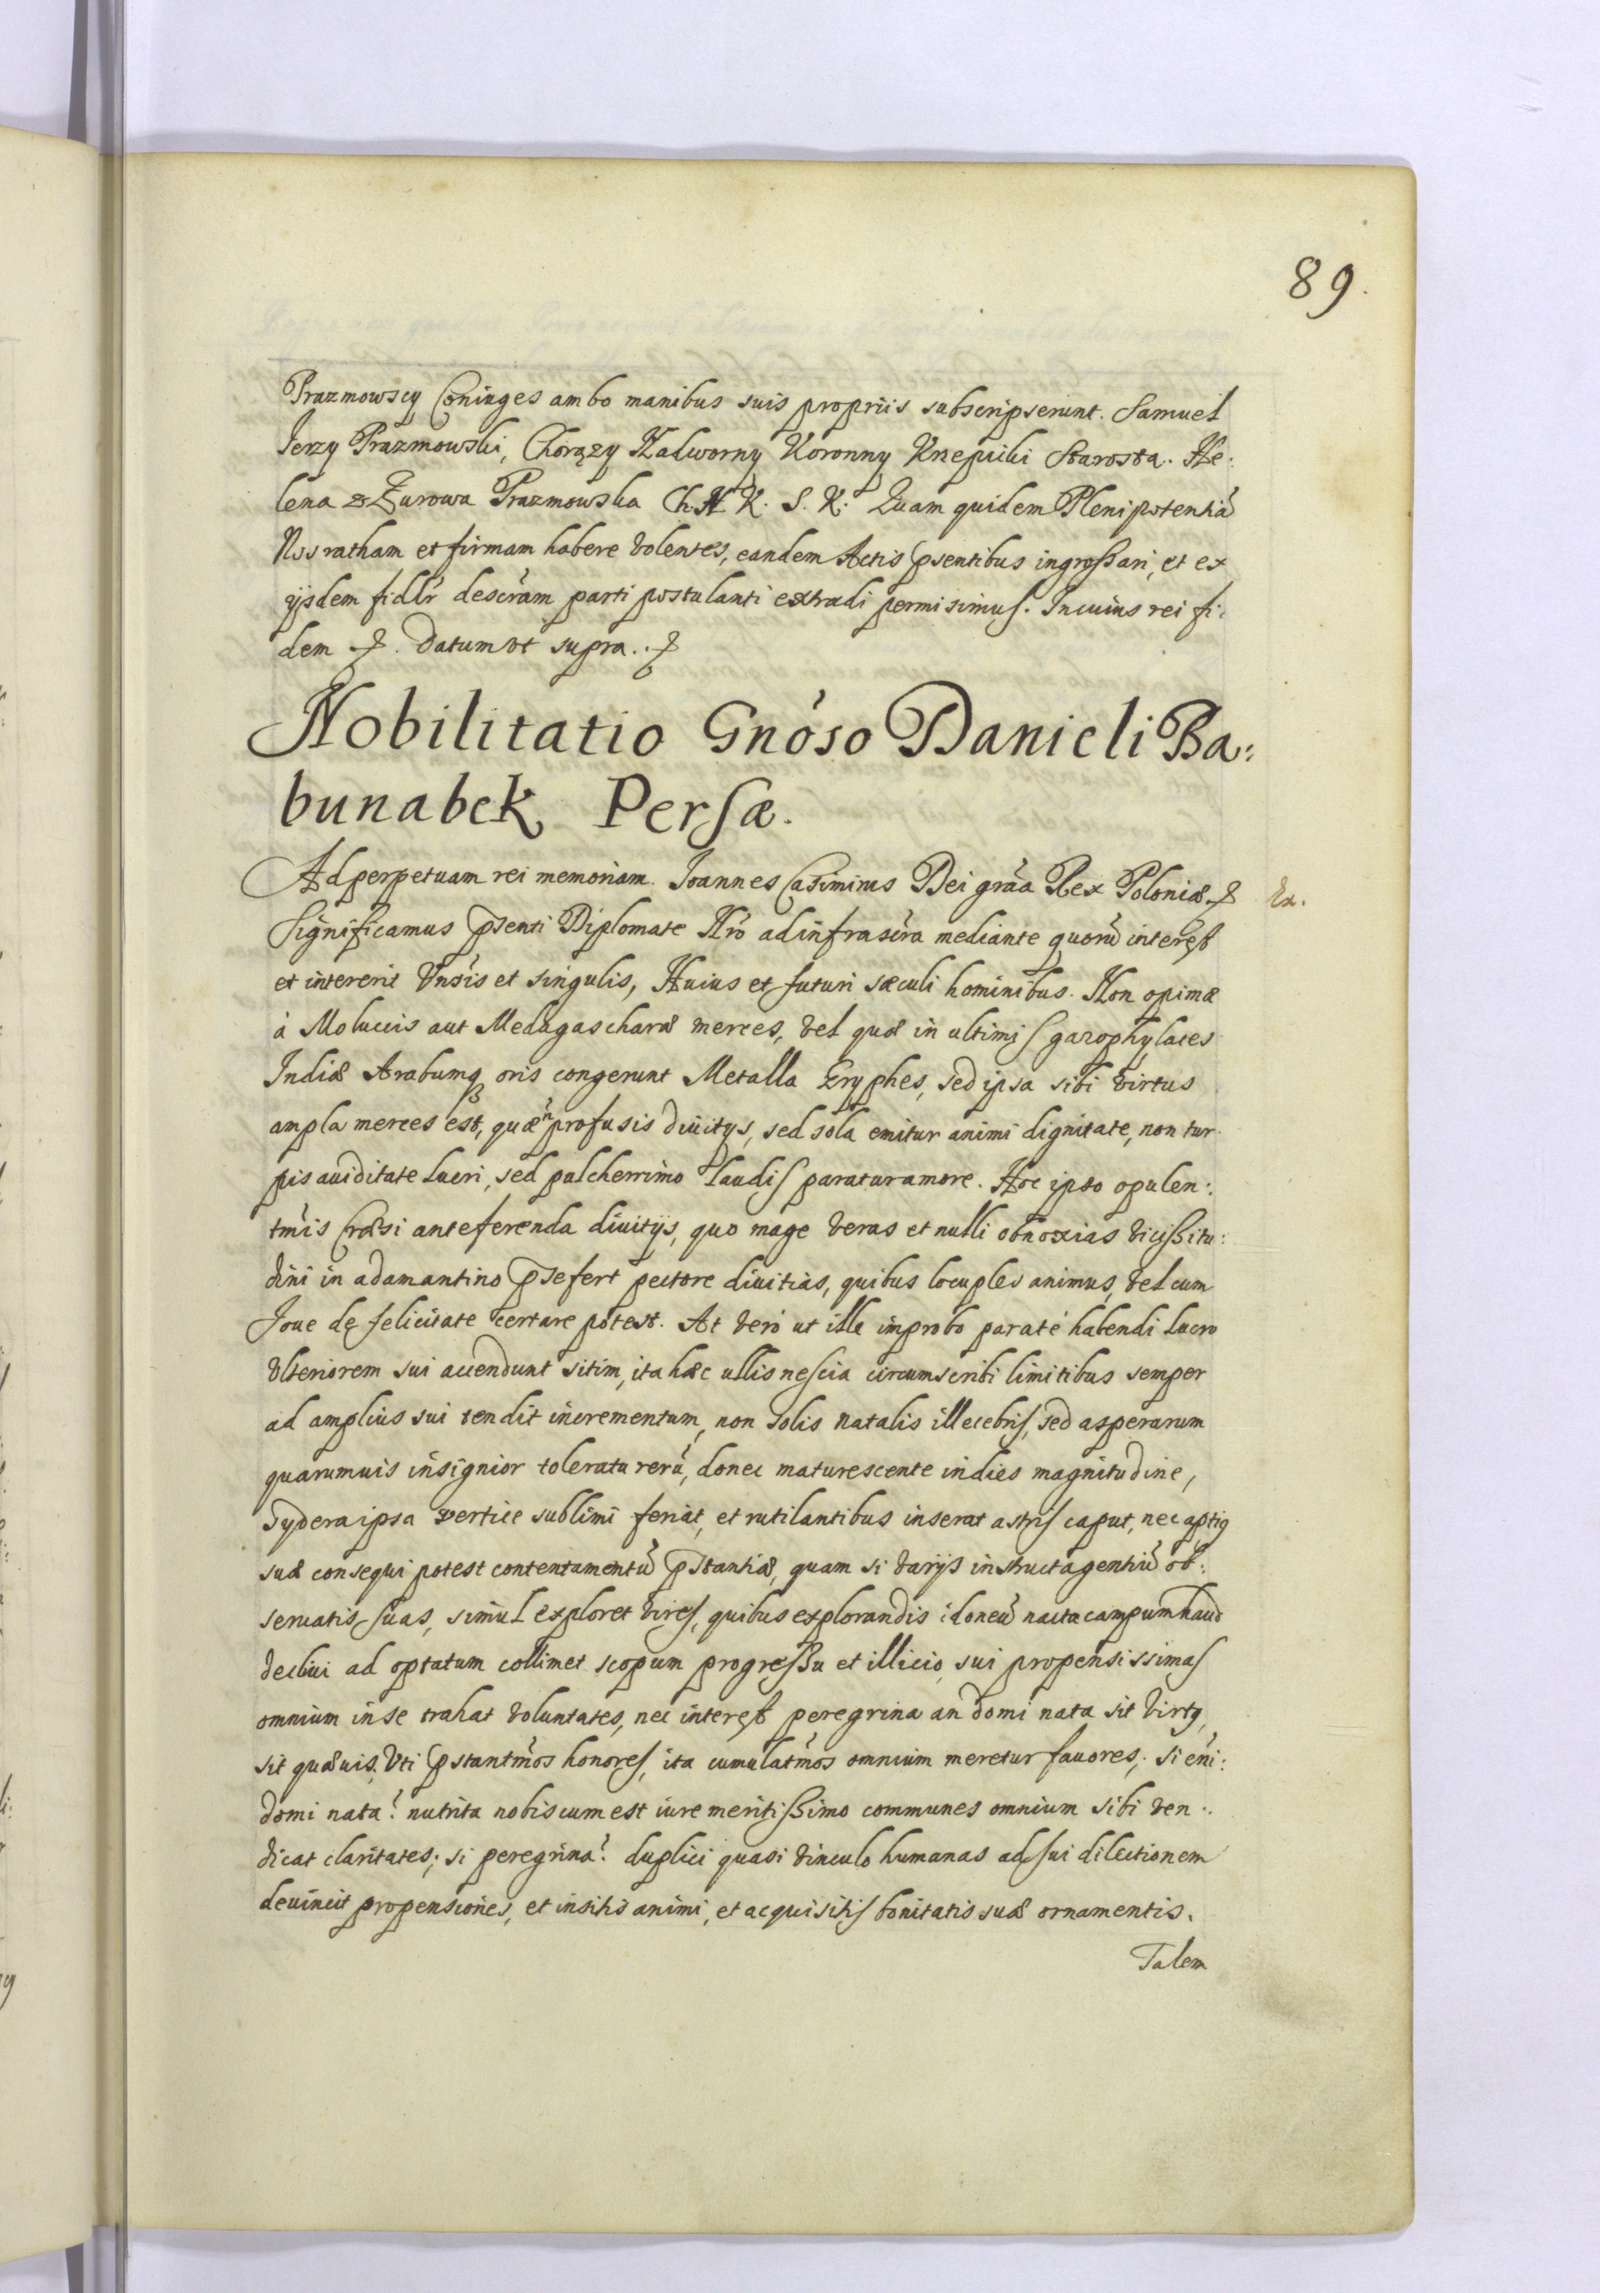 89.
Prazmowscy Coniuges ambo manibus suis propriis subscripserunt. Samuel
Jerzy Prazmowski, Chorązy Nadworny Koronny Krzepicki Starosta. He:
lena z Zurowa Prazmowska Ch. N. K. S. K: Quam quidem Plenipotentiā
Nos ratham et firmam habere volentes, eandem Actis pśentibus ingrossari, et ex
ijsdem fidlr̄ descr̄am parti postulanti extradi permisimus. In cuius rei fi:
dem etc. Datum vt supra. etc.
Nobilitatio Gnōso Danieli Ba:
bunabek Persæ.
Ad perpetuam rei memoriam. Joannes Casimirus Dei grāa Rex Poloniæ etc. Ex.
Significamus pśenti Diplomate Nrō ad infrascr̄a mediante quorū interest
et intererit Vnsīs et singulis, Huius et futuri sæculi hominibus. Non opimæ
à Moluccis aut Medagascharæ merces, vel quæ in ultimis gazophylaces
Indiæ Arabumq; oris congerunt Metalla Gryphes, sed ipsa sibi virtus
ampla merces est, quæ n̄ profusis diuitijs, sed sola emitur animi dignitate, non tur
pis auiditate lucri, sed pulcherrimo laudis paratur amore. Hoc ipso opulen:
tm̄is Cræsi anteferenda diuitijs, quo mage veras et nulli obnoxias vicissitu:
dini in adamantino pśefert pectore diuitias, quibus locuples animus, vel cum
Joue de felicitate certare potest. At verò ut illæ improbo paratè habendi lucro
vlteriorem sui accendunt sitim, ita hæc ullis nescia circumscribi limitibus semper
ad amplius sui tendit incrementum, non solis natalis illecebris, sed asperarum
quarumuis insignior toleratu rerū, donec maturescente indies magnitudine,
Sydera ipsa vertice sublimi feriat, et rutilantibus inserat astris caput, nec aptiq
suæ consequi potest contentamentū pśtantiæ, quam si varijs instructa gentiū ob:
seruatis suas, simul exploret vires, quibus explorandis idoneū nacta campum haud
decliui ad optatum collimet scopum progressu et illicio sui propensissimas
omnium in se trahat voluntates, nec interest peregrina an domi nata sit virtq,
sit quæuis, Vti pśtantm̄os honores, ita cumulatm̄os omnium meretur fauores; si eni:
domi nata? nutrita nobiscum est iure meritissimo communes omnium sibi ven:
dicat claritates; si peregrina? duplici quasi vinculo humanas ad sui dilectionem
deuincit propensiones, et insitis animi, et acquisitis bonitatis suæ ornamentis.
Talem